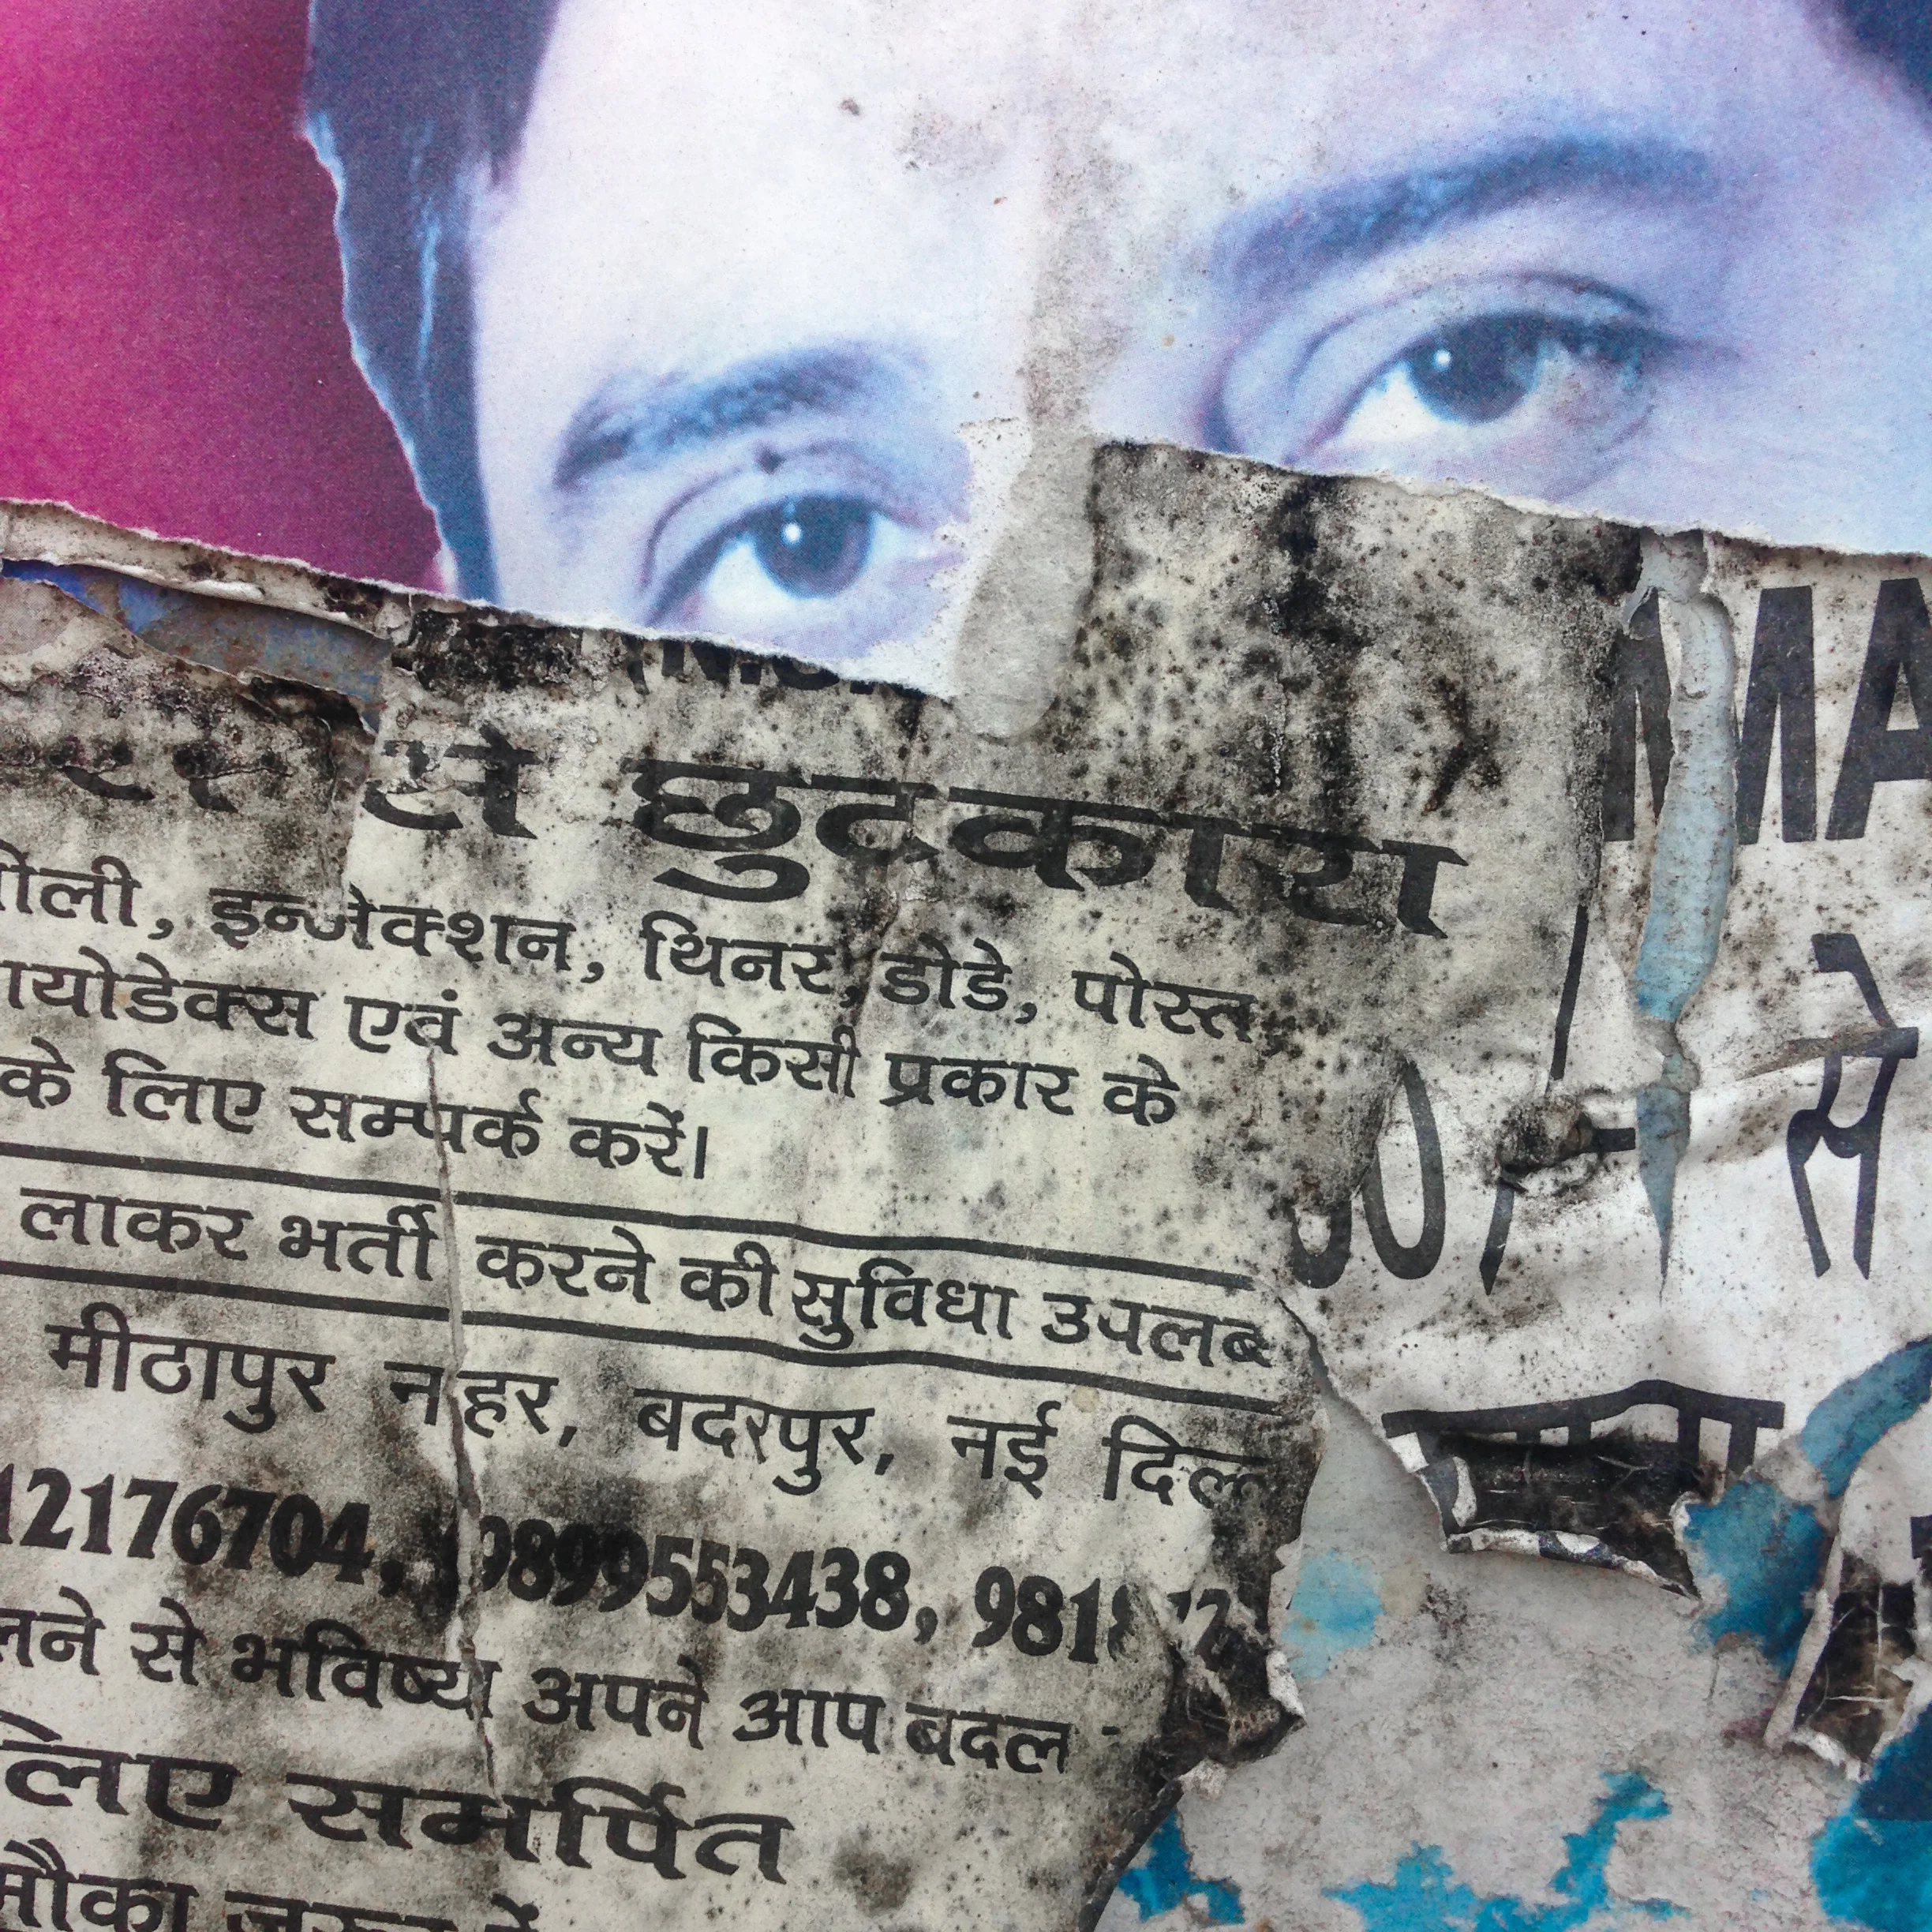 से छुटकारा
गोली, इन्जेक्शन, थिनर, डोडे, पोस्त,
आयोडेक्स एवं अन्य किसी प्रकार के
के लिए सम्पर्क करें।
लाकर भर्ती करने की सुविधा उपलब्ध
मीठापुर नहर, बदरपुर, नई दिल्
12176704, 9899553438, 9818
लने से भविष्य अपने आप बदल
लिए समर्पित
मौका जरूर दें
MA
से